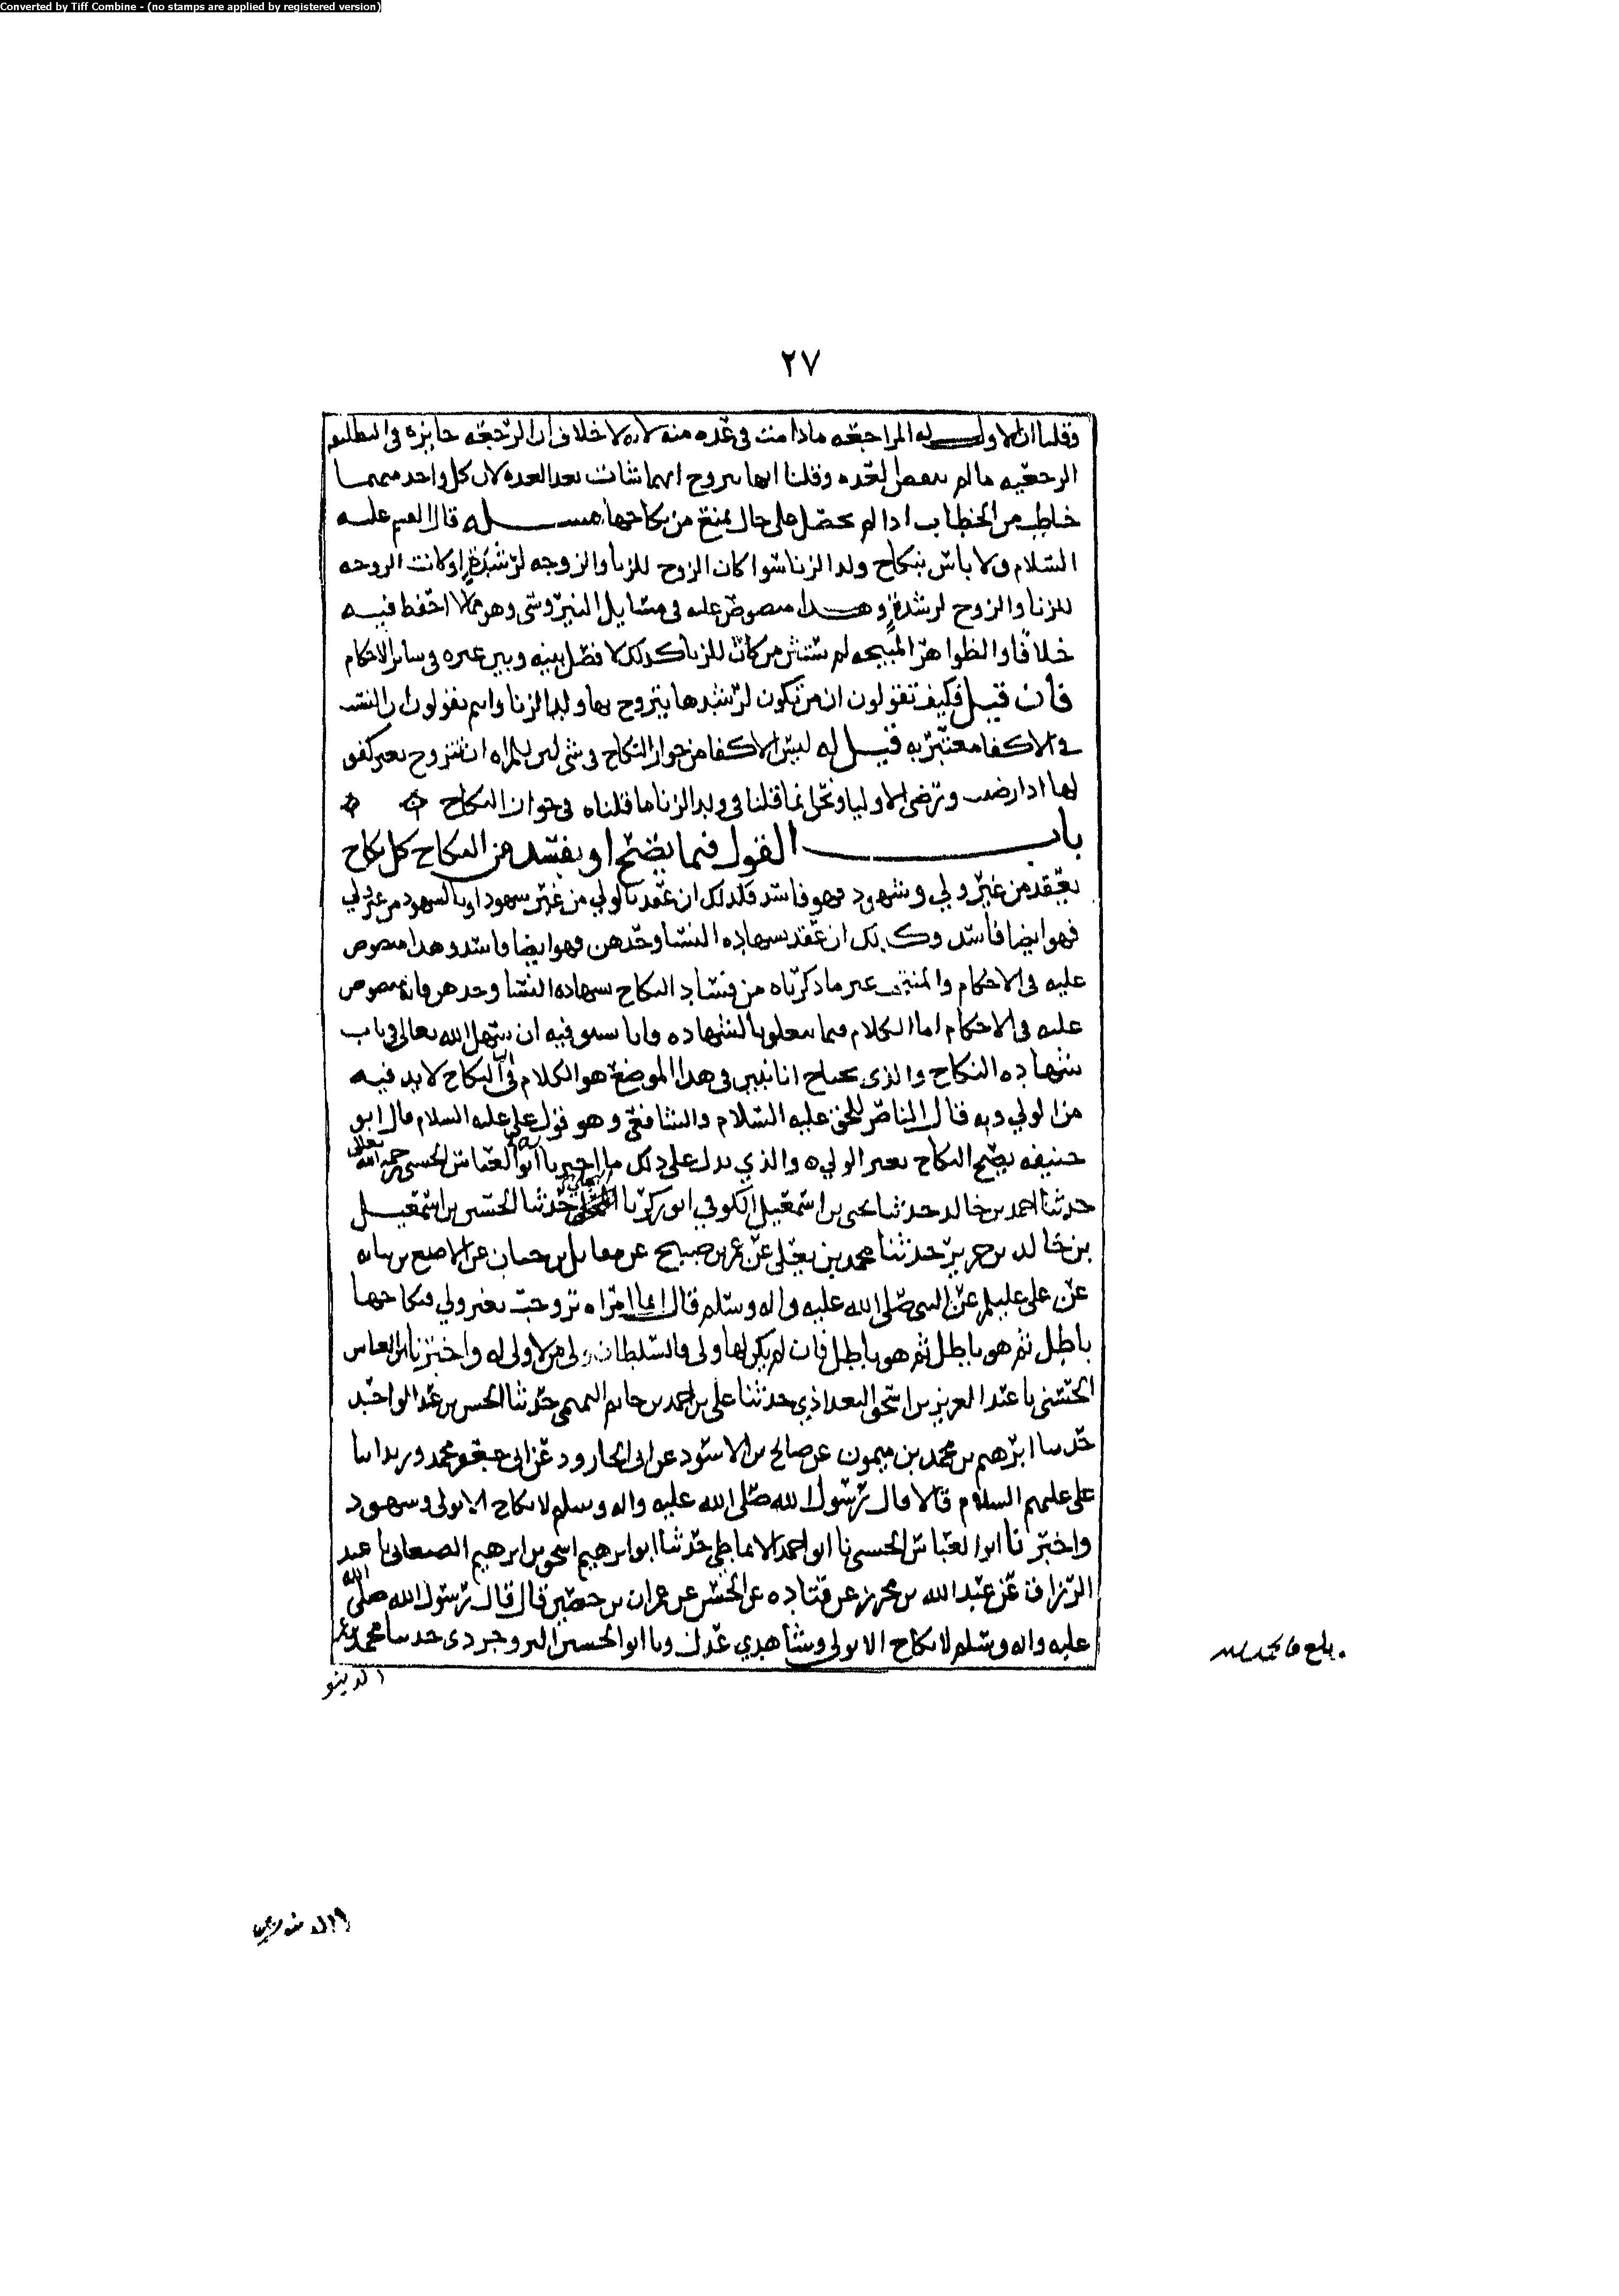 Converted by Tiff Combine - (no stamps are applied by registered version)
٢٧
وقلنا ان الاول له المراجعه ماذامت في عده منه لانه لا خلاف ان الرجعه جايزه في التطليق
الرجعيه ما لم تنقض العده وقلنا انها تتزوج ايهما شات بعد العده لان كل واحد منهما
خاطب من الخطاب اذا لم تحصل على حال يمنع من نكاحها مسله قال القسم عليه
السلام ولا باس بنكاح ولد الزنا سوا كان الزوج للزنا والزوجه لرشدة او كانت الزوجه
للزنا والزوج لرشدة وهذا منصوص عليه في مسايل النيروسي وهو مما لا احفظ فيه
خلافا والظواهر المبيحه لم تستثن من كان للزنا كذلك لا فصل بينه وبين غيره في ساير الاحكام
فان قيل فكيف تقولون ان من تكون لرشدها يتزوج بها ولد الزنا وانتم تقولون ان النسب
في الاكفا معتبر به قيل له ليس الاكفا من جواز النكاح في شي لان للمراه ان تتزوج بغير كفو
لها اذا رضيت وترضى الاوليا ونحن انما قلنا في ولد الزنا ما قلناه في جواز النكاح
باب القول فيما يصح او يفسد من النكاح كل نكاح
يعقد من غير ولي وشهود فهو فاسد فكذلك ان عقد بالولي من غير شهود او بالشهود من غير ولي
فهو ايضا فاسد وكذلك ان عقد بشهاده النسا وحدهن فهو ايضا فاسد وهذا منصوص
عليه في الاحكام والمنتخب غير ما ذكرناه من فساد النكاح بشهاده النسا وحدهن فانه منصوص
عليه في الاحكام اما الكلام فيما يتعلق بالشهاده فانا نستوفيه ان سهل الله تعالى في باب
شهاده النكاح والذي يحتاج ان نبين في هذا الموضع هو الكلام في ان النكاح لا بد فيه
من الولي وبه قال الناصر للحق عليه السلام والشافعي وهو قول علي عليه السلام قال ابو
حنيفه يصح النكاح بغير الولي والذي يدل على ذلك ما اخبرنا به ابو العباس الحسني رحمه الله تعالى
حدثنا احمد بن خالد حدثنا يحيى بن اسمعيل الكوفي ابو زكريا حدثنا الحسن بن اسمعيل
بن خالد بن جرير حدثنا محمد بن يعلى عن عمر بن صبيح عن مقاتل بن حيان عن الاصبغ بن نباته
عن علي عليلم عن النبي صلى الله عليه واله وسلم قال ايما امراه تزوجت بغير ولي فنكاحها
باطل ثم هو باطل ثم هو باطل فان لم يكن لها ولي فالسلطان ولي من لا ولي له واخبرنا ابو العباس
الحسني نا عبد العزيز بن اسحق البغداذي حدثنا علي بن احمد بن حاتم التميمي حدثنا الحسن بن عبد الواحد
حدثنا ابرهيم بن محمد بن ميمون عن صالح بن الاسود عن ابي الجارود عن ابي جعفر محمد وزيد ابنا
علي عليهم السلام قالا قال رسول الله صلى الله عليه واله وسلم لا نكاح الا بولي وشهود
واخبرنا ابو العباس الحسني نا ابو احمد الانماطي حدثنا ابو ابرهيم اسحق بن ابرهيم الصنعاني نا عبد
الرزاق عن عبد الله بن محرز عن قتاده عن الحسن عن عمران بن حصين قال قال رسول الله صلى الله
عليه واله وسلم لا نكاح الا بولي وشاهدي عدل ونا ابو الحسين البروجردي حدثنا محمد بن عمر
الدينو
بلغ